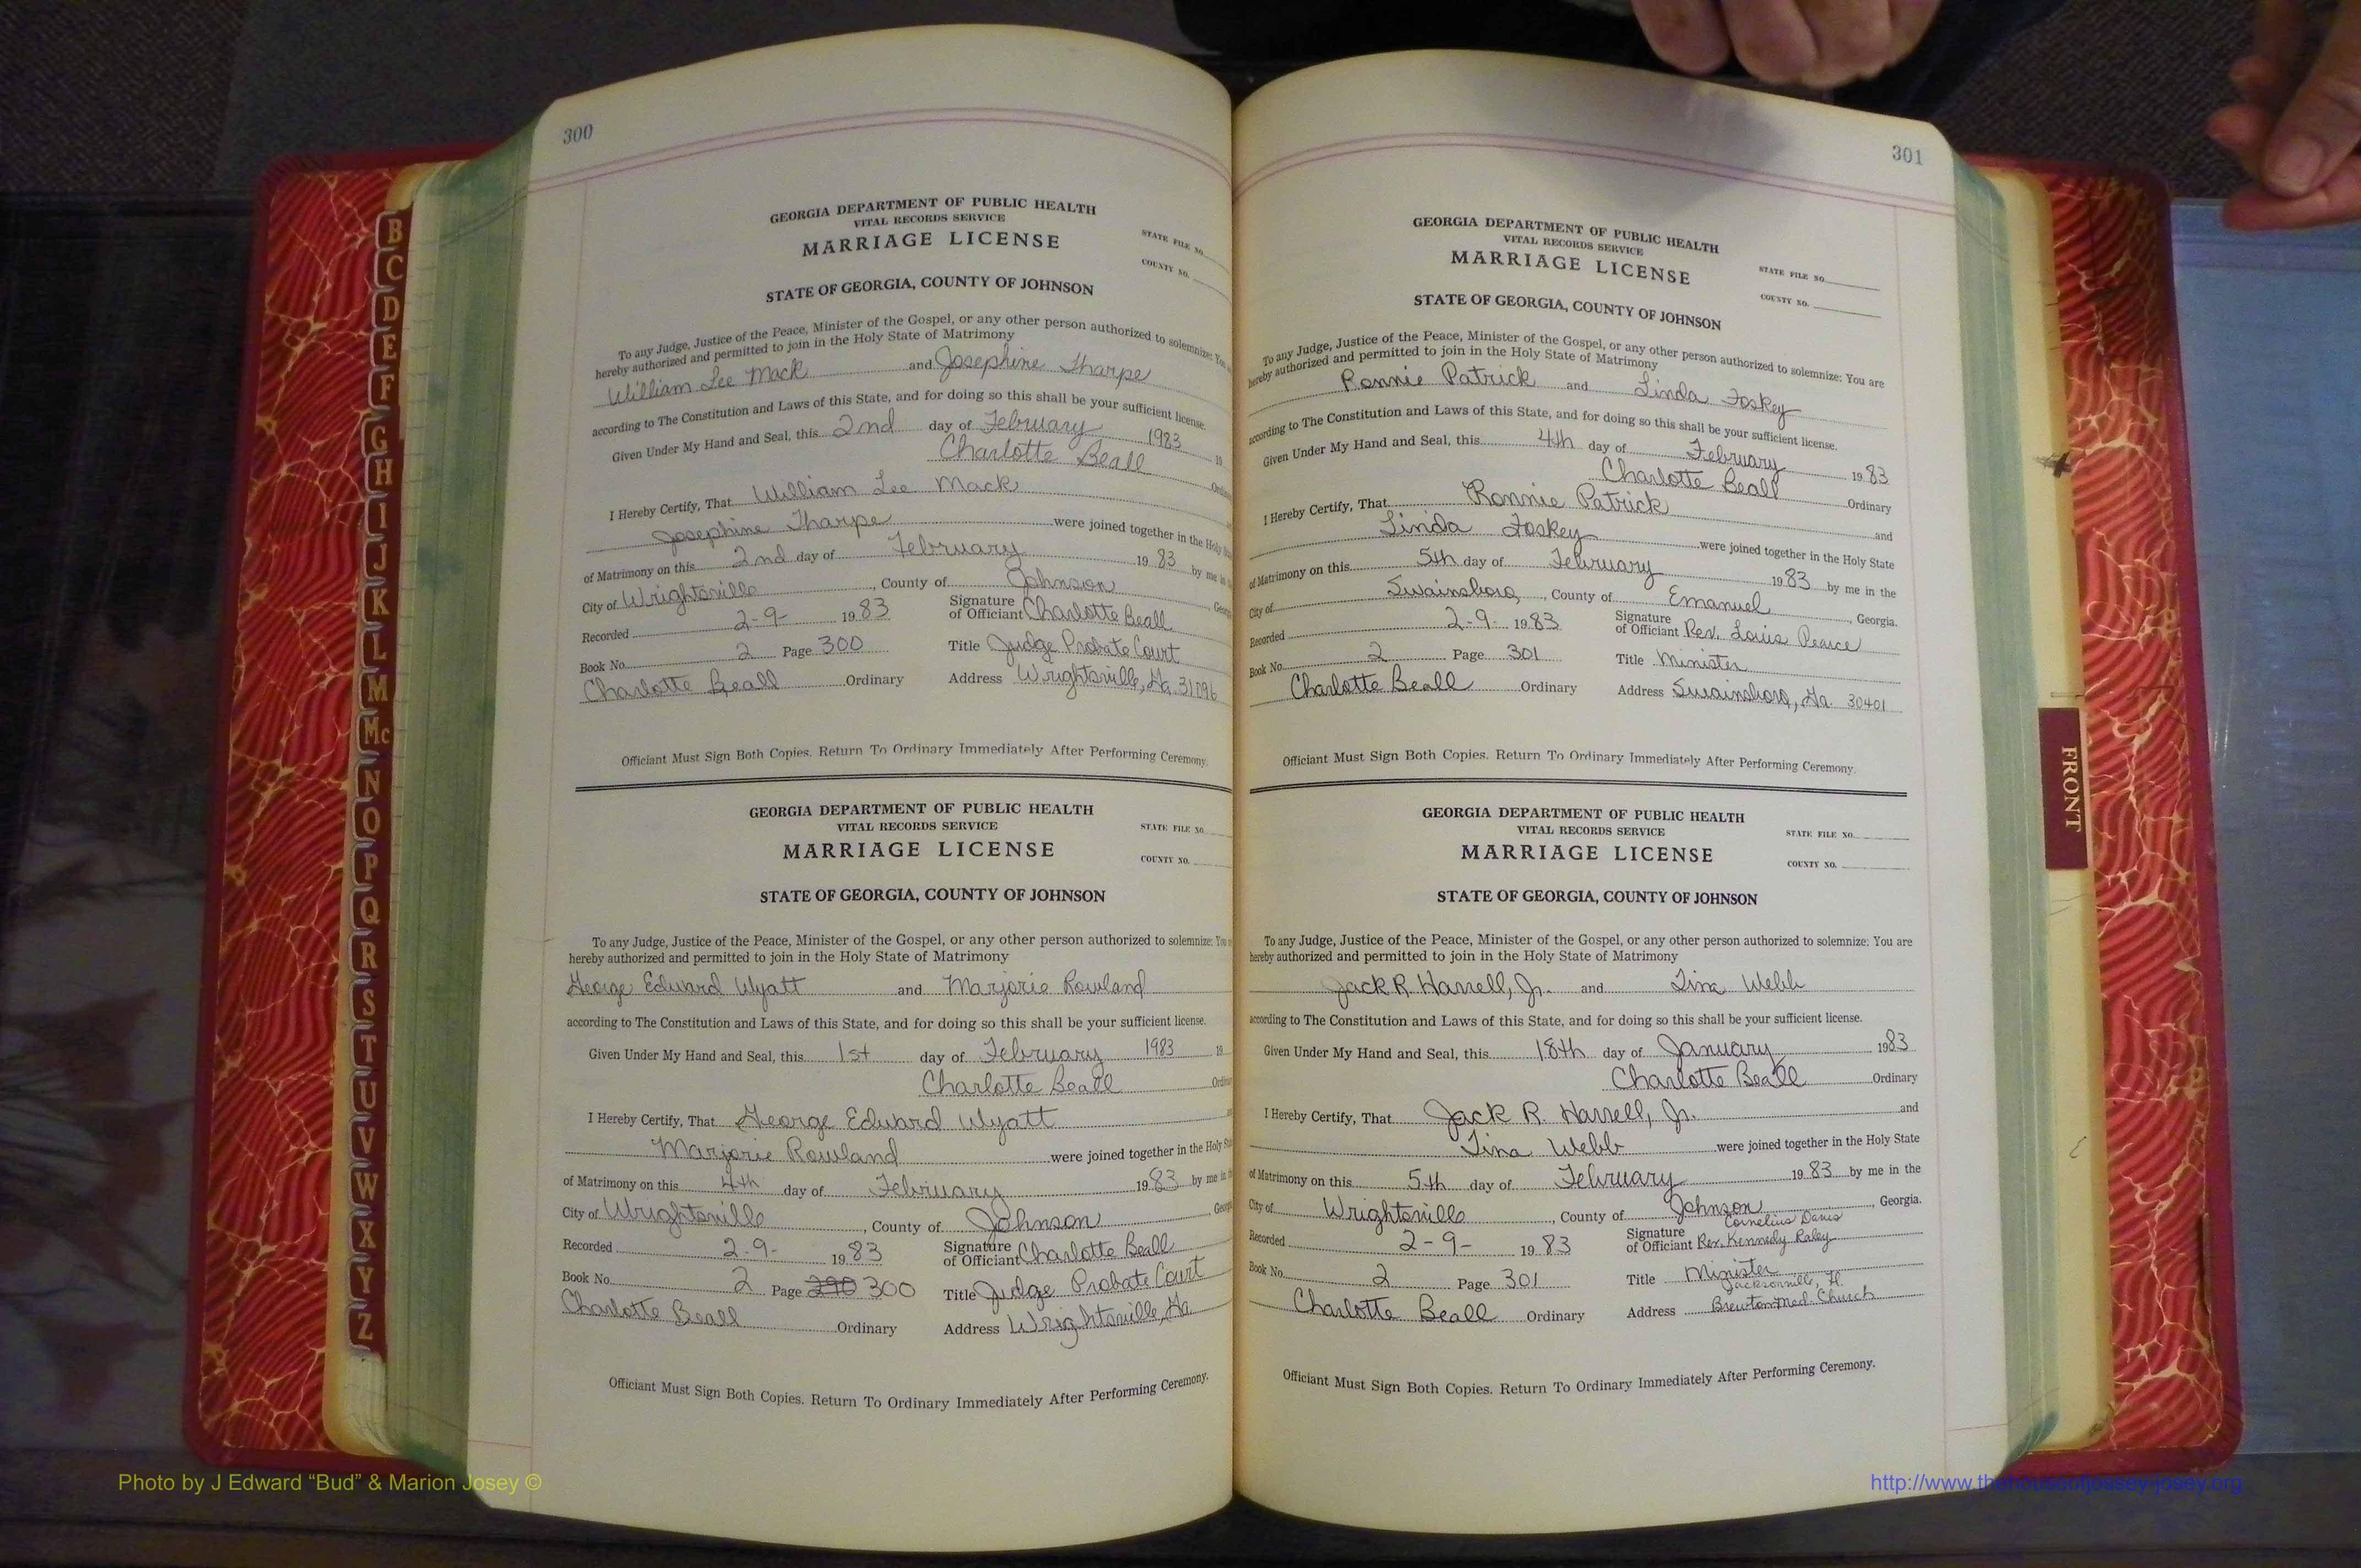 300
GEORGIA DEPARTMENT OF PUBLIC HEALTH
VITAL RECORDS SERVICE
MARRIAGE LICENSE
STATE FILE NO.
COUNTY NO.
STATE OF GEORGIA, COUNTY OF JOHNSON
To any Judge, Justice of the Peace, Minister of the Gospel, or any other person authorized to solemnize: You
hereby authorized and permitted to join in the Holy State of Matrimony
William Lee Mack and Josephine Tharpe
according to The Constitution and Laws of this State, and for doing so this shall be your sufficient license.
Given Under My Hand and Seal, this 2nd day of February 1983 19
Charlotte Beall
I Hereby Certify, That William Lee Mack
Josephine Tharpe were joined together in the Holy
of Matrimony on this 2nd day of February 19 83 by me in
City of Wrightsville, County of Johnson
Recorded 2-9- 19 83 Signature of Officiant Charlotte Beall
Book No. 2 Page 300 Title Judge Probate Court
Charlotte Beall Ordinary Address Wrightsville, Ga. 31096
Officiant Must Sign Both Copies. Return To Ordinary Immediately After Performing Ceremony.
GEORGIA DEPARTMENT OF PUBLIC HEALTH
VITAL RECORDS SERVICE
MARRIAGE LICENSE
STATE FILE NO.
COUNTY NO.
STATE OF GEORGIA, COUNTY OF JOHNSON
To any Judge, Justice of the Peace, Minister of the Gospel, or any other person authorized to solemnize: You
hereby authorized and permitted to join in the Holy State of Matrimony
George Edward Wyatt and Marjorie Rowland
according to The Constitution and Laws of this State, and for doing so this shall be your sufficient license.
Given Under My Hand and Seal, this 1st day of February 1983 19
Charlotte Beall
I Hereby Certify, That George Edward Wyatt
Marjorie Rowland were joined together in the Holy
of Matrimony on this 4th day of February 19 83 by me in
City of Wrightsville, County of Johnson
Recorded 2-9- 19 83 Signature of Officiant Charlotte Beall
Book No. 2 Page 290 300 Title Judge Probate Court
Charlotte Beall Ordinary Address Wrightsville, Ga.
Officiant Must Sign Both Copies. Return To Ordinary Immediately After Performing Ceremony.
301
GEORGIA DEPARTMENT OF PUBLIC HEALTH
VITAL RECORDS SERVICE
MARRIAGE LICENSE
STATE FILE NO.
COUNTY NO.
STATE OF GEORGIA, COUNTY OF JOHNSON
To any Judge, Justice of the Peace, Minister of the Gospel, or any other person authorized to solemnize: You are
hereby authorized and permitted to join in the Holy State of Matrimony
Ronnie Patrick and Linda Foskey
according to The Constitution and Laws of this State, and for doing so this shall be your sufficient license.
Given Under My Hand and Seal, this 4th day of February 19 83
Charlotte Beall Ordinary
I Hereby Certify, That Ronnie Patrick and
Linda Foskey were joined together in the Holy State
of Matrimony on this 5th day of February 19 83 by me in the
City of Swainsboro, County of Emanuel, Georgia.
Recorded 2-9- 19 83 Signature of Officiant Rev. Louis Pearce
Book No. 2 Page 301 Title Minister
Charlotte Beall Ordinary Address Swainsboro, Ga. 30401
Officiant Must Sign Both Copies. Return To Ordinary Immediately After Performing Ceremony.
GEORGIA DEPARTMENT OF PUBLIC HEALTH
VITAL RECORDS SERVICE
MARRIAGE LICENSE
STATE FILE NO.
COUNTY NO.
STATE OF GEORGIA, COUNTY OF JOHNSON
To any Judge, Justice of the Peace, Minister of the Gospel, or any other person authorized to solemnize: You are
hereby authorized and permitted to join in the Holy State of Matrimony
Jack R. Harrell, Jr. and Tina Webb
according to The Constitution and Laws of this State, and for doing so this shall be your sufficient license.
Given Under My Hand and Seal, this 18th day of January 1983
Charlotte Beall Ordinary
I Hereby Certify, That Jack R. Harrell, Jr. and
Tina Webb were joined together in the Holy State
of Matrimony on this 5th day of February 19 83 by me in the
City of Wrightsville, County of Johnson, Georgia.
Cornelius Davis
Recorded 2-9- 19 83 Signature of Officiant Rev. Kennedy Raley
Book No. 2 Page 301 Title Minister
Jacksonville, Fl.
Charlotte Beall Ordinary Address Brewton Med. Church
Officiant Must Sign Both Copies. Return To Ordinary Immediately After Performing Ceremony.
B
C
D
E
F
G
H
I
J
K
L
M
Mc
N
O
P
Q
R
S
T
U
V
W
X
Y
Z
FRONT
Photo by J Edward “Bud” & Marion Josey ©
http://www.thehouseofjossey-josey.org